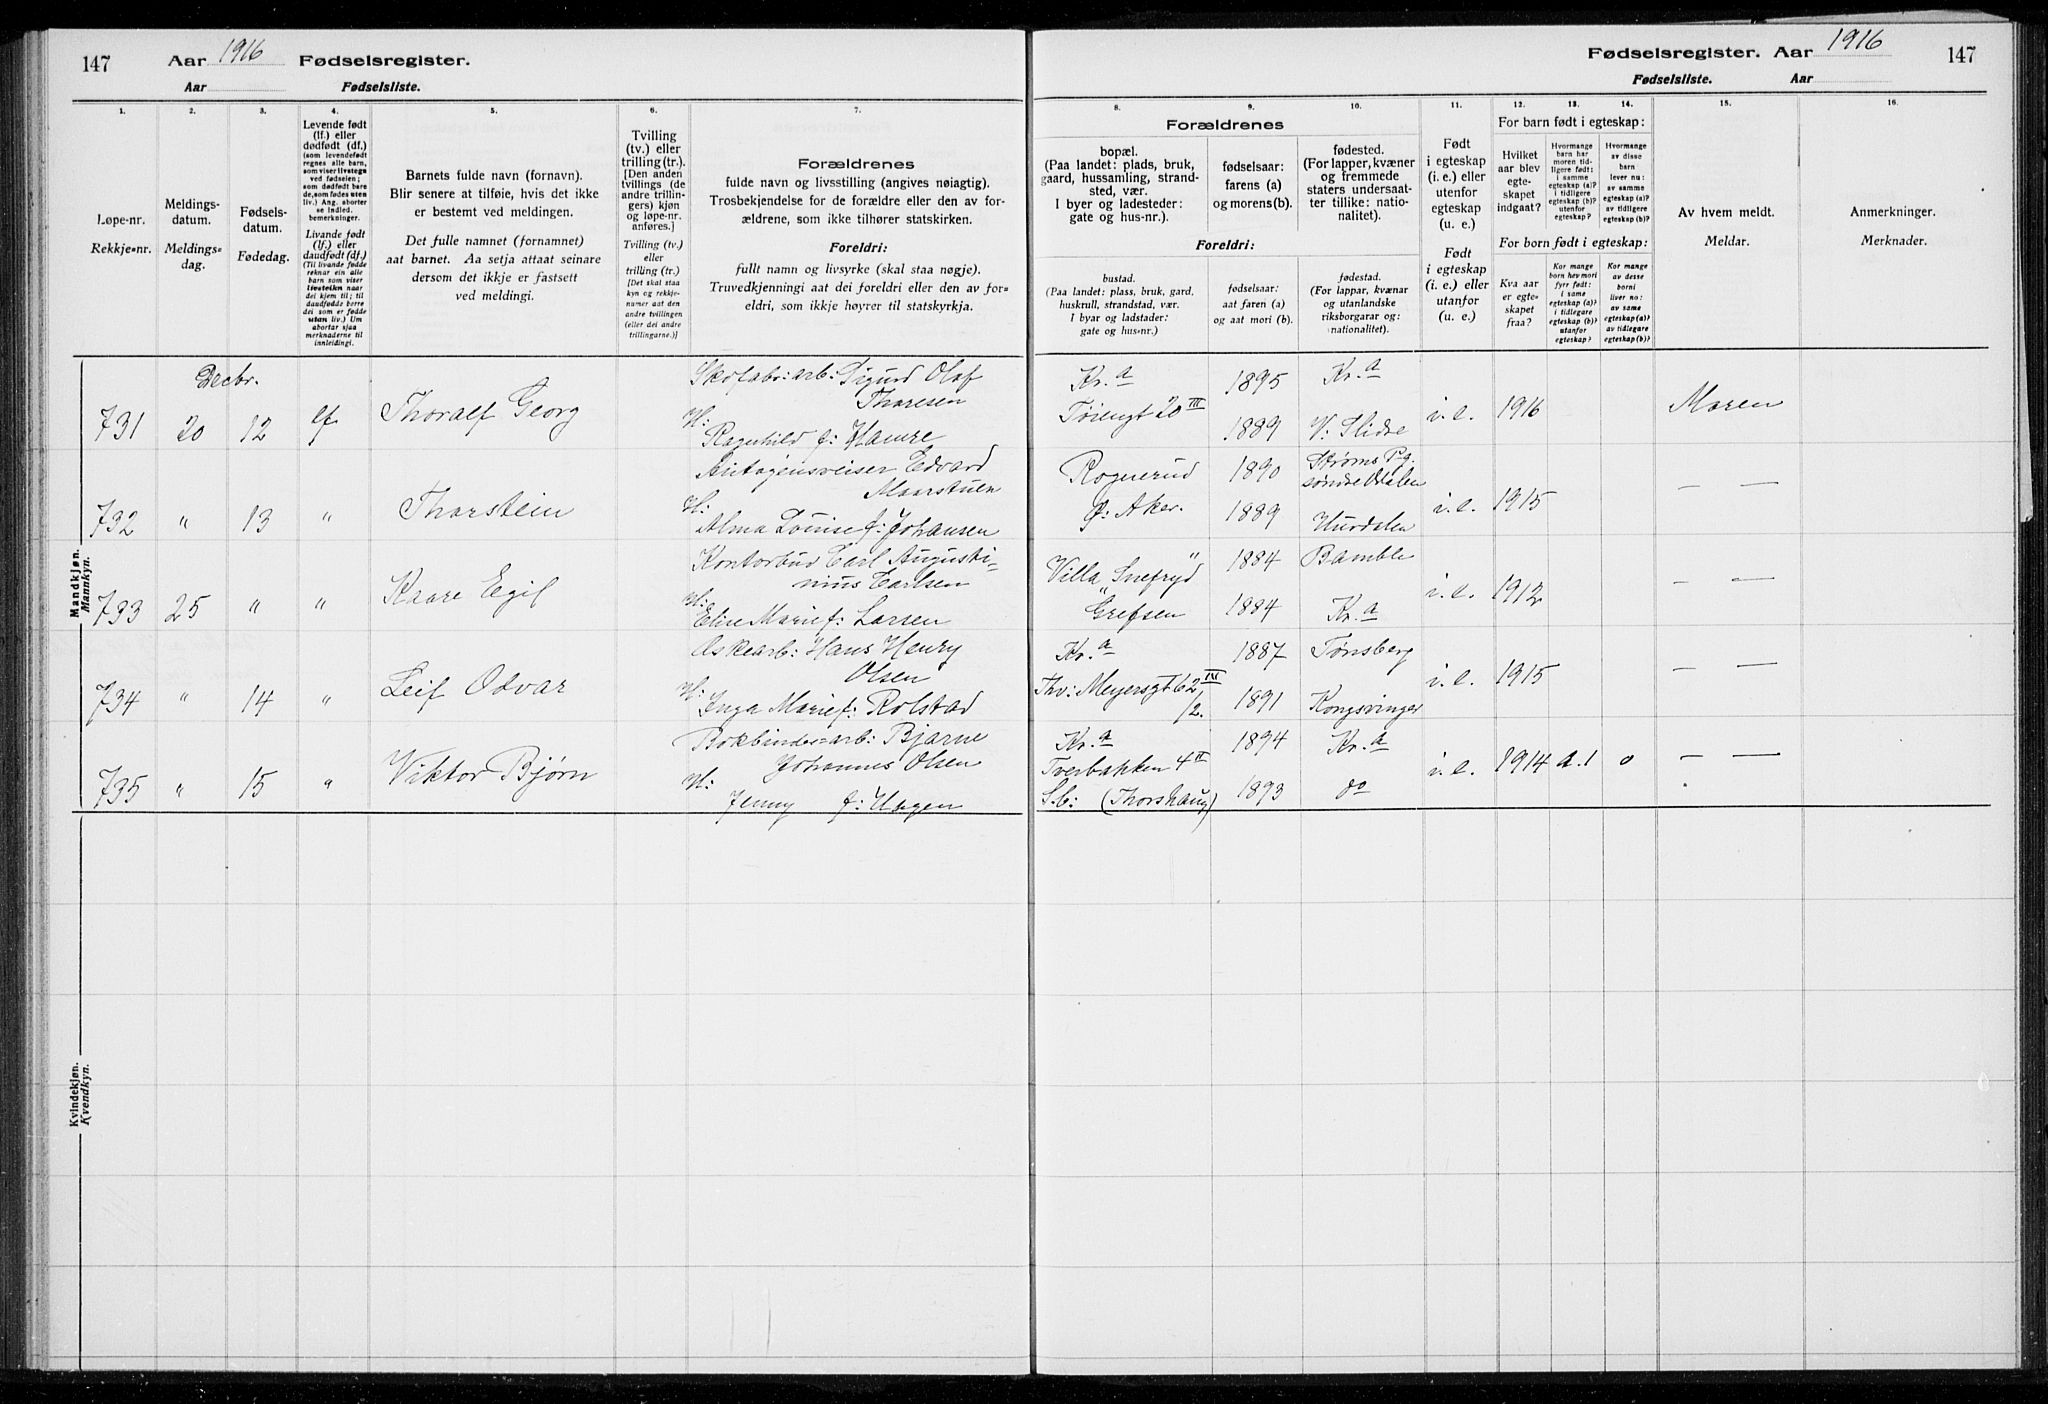 147 Aar 1916 Fødselsregister.
Aar Fødselsliste.
Fødselsregister. Aar 1916 147
Fødselsliste. Aar
1. 2. 3. 4. 5. 6. 7.
Løpe-nr.
Rekkje-nr.
Meldings-
datum.
Meldings-
dag.
Fødsels-
datum.
Fødedag.
Levende født
(lf.) eller
dødfødt (df.)
(som levendefødt
regnes alle barn,
som viser livstegn
ved fødselen;
som dødfødt bare
de, som fødes uten
liv.) Ang. aborter
se indled.
bemerkninger.
Livande født
(lf.) eller
daudfødt (df.)
(Til livande fødde
reknar ein alle
barn som viser
livsteikn naar
dei kjem til; til
daudfødde berre
dei som er fødde
utan liv.) Um
abortar sjaa
merknaderne til
innleidingi.
Barnets fulde navn (fornavn).
Blir senere at tilføie, hvis det ikke
er bestemt ved meldingen.
Det fulle namnet (fornamnet)
aat barnet. Aa setja attaat seinare
dersom det ikkje er fastsett
ved meldingi.
Tvilling
(tv.) eller
trilling (tr.).
[Den anden
tvillings (de
andre trillin-
gers) kjøn
og løpe-nr.
anføres.]
Tvilling (tv.)
eller
trilling (tr.)
[Det skal staa
kyn og rekkje-
numer aat den
andre tvillingen
(eller dei andre
trillingarne.)]
Forældrenes
fulde navn og livsstilling (angives nøiagtig).
Trosbekjendelse for de forældre eller den av for-
ældrene, som ikke tilhører statskirken.
Foreldri:
fullt namn og livsyrke (skal staa nøgje).
Truvedkjenningi aat dei foreldri eller den av for-
eldri, som ikkje høyrer til statskyrkja.
8. 9. 10. 11. 12. 13. 14. 15. 16.
Forældrenes
bopæl.
(Paa landet: plads, bruk,
gaard, hussamling, strand-
sted, vær.
I byer og ladesteder:
gate og hus-nr.).
fødselsaar:
farens (a)
og morens (b).
fødested.
(For lapper, kvæner
og fremmede
staters undersaat-
ter tillike: natio-
nalitet).
Foreldri:
bustad.
(Paa landet: plass, bruk, gard,
huskrull, strandstad, vær.
I byar og ladstader:
gate og hus-nr.)
fødselsaar:
aat faren (a)
og aat mori (b).
fødestad.
(For lappar, kvænar
og utanlandske
riksborgarar og:
nationalitet).
Født
i egteskap
(i. e.) eller
utenfor
egteskap
(u. e.)
Født
i egteskap
(i. e.) eller
utanfor
(u. e.)
For barn født i egteskap:
Hvilket
aar blev
egte-
skapet
indgaat?
Hvormange
barn har
moren tid-
ligere født:
i samme
egteskap (a)?
i tidligere
egteskap (b)?
utenfor
egteskap?
Hvormange
av disse
barn
lever nu:
av samme
egteskap (a)?
av tidligere
egteskap (b)?
For born født i egteskap:
Kva aar
er egte-
skapet
fraa?
Kor mange
born hev mori
fyrr født:
i same
egteskap (a)?
i tidlegare
egteskap (b)?
utanfor
egteskap?
Kor mange
av desse
borni
liver no:
av same
egteskap (a)?
av tidlegare
egteskap (b)?
Av hvem meldt.
Meldar.
Anmerkninger.
Merknader.
Decbr.
731 20 12 lf Thoralf Georg
Skofabr: arb: Sigurd Olaf
Thoresen
H:
Ragnhild f: Hamre
Kr.a 1895 Kr.a
Tøiengt 20 III 1889 V: Slidre
i. e. 1916 Moren
732 " 13 " Thorstein
Autogensveiser Edvard
Maarstuen
H:
Alma Louise f: Johansen
Rognerud 1890 Strøms Pg.
søndre Odalen
Ø: Aker. 1889 Hurdalen
i. e. 1915 — —
733 25 " " Kaare Egil
Kontorbud Carl Augusti-
nius Carlsen
H:
Elise Marie f: Larsen
Villa „Snefryd" 1884 Bamble
Grefsen 1884 Kr.a
i. e. 1912 — —
734 " 14 " Leif Odvar
Askearb: Hans Henry
Olsen
H:
Inga Marie f: Rolstad
Kr.a 1887 Tønsberg
Thv: Meyersgt 62 III
/2. 1891 Kongsvinger
i. e. 1915 — —
735 " 15 " Viktor Bjørn
Bokbinder=arb: Bjarne
Johannes Olsen
H:
Jenny f: Hagen
Kr.a 1894 Kr.a
Tverbakken 4 II
S.b: (Thorshaug) 1893 do
i. e. 1914 a. 1 0 — —
Mandkjøn.
Mannkyn.
Kvindekjøn.
Kvendkyn.